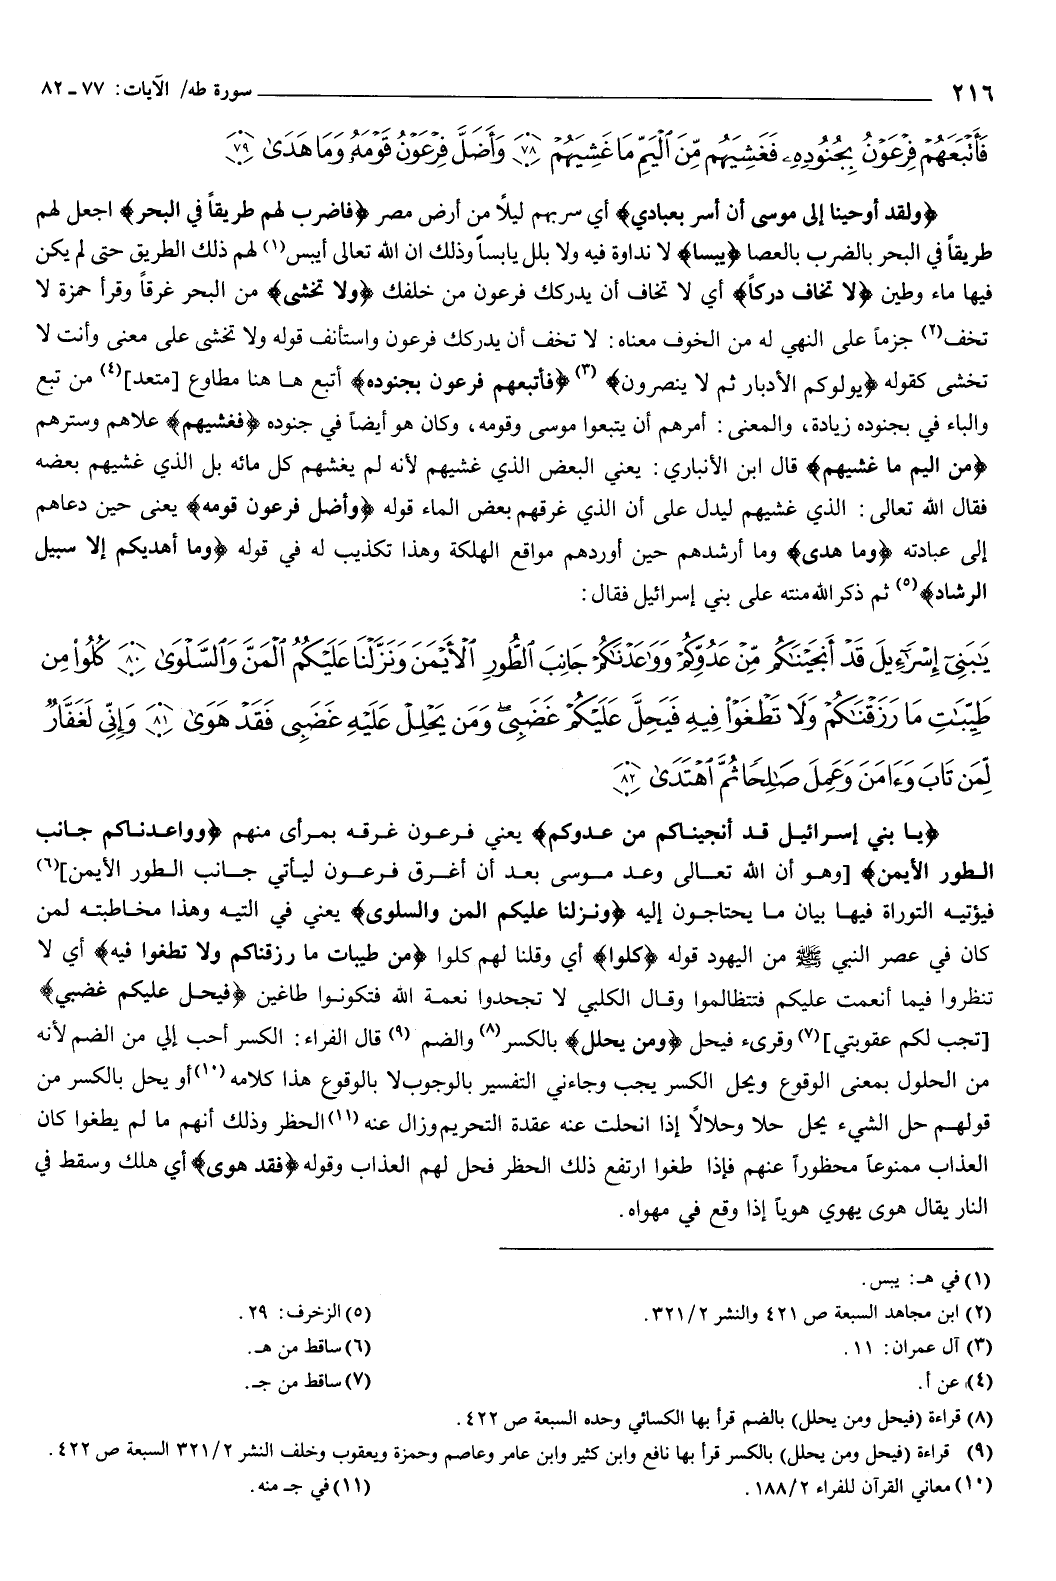 ٢١٦ سورة طه/ الآيات: ٧٧ ـ ٨٢
فَأَتْبَعَهُمْ فِرْعَوْنُ بِجُنُودِهِۦ فَغَشِيَهُم مِّنَ ٱلْيَمِّ مَا غَشِيَهُمْ ﴿٧٨﴾ وَأَضَلَّ فِرْعَوْنُ قَوْمَهُۥ وَمَا هَدَىٰ ﴿٧٩﴾
﴿ولقد أوحينا إلى موسى أن أسر بعبادي﴾ أي سر بهم ليلاً من أرض مصر ﴿فاضرب لهم طريقاً في البحر﴾ اجعل لهم
طريقاً في البحر بالضرب بالعصا ﴿يبسا﴾ لا نداوة فيه ولا بلل يابساً وذلك ان الله تعالى أيبس(١) لهم ذلك الطريق حتى لم يكن
فيها ماء وطين ﴿لا تخاف دركاً﴾ أي لا تخاف أن يدركك فرعون من خلفك ﴿ولا تخشى﴾ من البحر غرقاً وقرأ حمزة لا
تخف(٢) جزماً على النهي له من الخوف معناه: لا تخف أن يدركك فرعون واستأنف قوله ولا تخشى على معنى وأنت لا
تخشى كقوله ﴿يولوكم الأدبار ثم لا ينصرون﴾ (٣) ﴿فأتبعهم فرعون بجنوده﴾ أتبع هـا هنا مطاوع [متعد](٤) من تبع
والباء في بجنوده زيادة، والمعنى: أمرهم أن يتبعوا موسى وقومه، وكان هو أيضاً في جنوده ﴿فغشيهم﴾ علاهم وسترهم
﴿من اليم ما غشيهم﴾ قال ابن الأنباري: يعني البعض الذي غشيهم لأنه لم يغشهم كل مائه بل الذي غشيهم بعضه
فقال الله تعالى: الذي غشيهم ليدل على أن الذي غرقهم بعض الماء قوله ﴿وأضل فرعون قومه﴾ يعنى حين دعاهم
إلى عبادته ﴿وما هدى﴾ وما أرشدهم حين أوردهم مواقع الهلكة وهذا تكذيب له في قوله ﴿وما أهديكم إلا سبيل
الرشاد﴾(٥) ثم ذكر الله منته على بني إسرائيل فقال:
يَٰبَنِىٓ إِسْرَٰٓءِيلَ قَدْ أَنجَيْنَٰكُم مِّنْ عَدُوِّكُمْ وَوَٰعَدْنَٰكُمْ جَانِبَ ٱلطُّورِ ٱلْأَيْمَنَ وَنَزَّلْنَا عَلَيْكُمُ ٱلْمَنَّ وَٱلسَّلْوَىٰ ﴿٨٠﴾ كُلُوا۟ مِن
طَيِّبَٰتِ مَا رَزَقْنَٰكُمْ وَلَا تَطْغَوْا۟ فِيهِ فَيَحِلَّ عَلَيْكُمْ غَضَبِى ۖ وَمَن يَحْلِلْ عَلَيْهِ غَضَبِى فَقَدْ هَوَىٰ ﴿٨١﴾ وَإِنِّى لَغَفَّارٌ
لِّمَن تَابَ وَءَامَنَ وَعَمِلَ صَٰلِحًا ثُمَّ ٱهْتَدَىٰ ﴿٨٢﴾
﴿يـا بني إسـرائيـل قـد أنجينـاكم من عـدوكم﴾ يعني فـرعـون غـرقـه بمـرأى منهم ﴿وواعـدنـاكم جـانب
الـطور الأيمن﴾ [وهـو أن الله تعـالى وعـد مـوسى بعـد أن أغـرق فـرعـون ليـأتي جـانب الـطور الأيمن](٦)
فيؤتيـه التوراة فيهـا بيان مـا يحتاجـون إليه ﴿ونـزلنا عليكم المن والسلوى﴾ يعني في التيـه وهذا مخـاطبتـه لمن
كان في عصر النبي ﷺ من اليهود قوله ﴿كلوا﴾ أي وقلنا لهم كلوا ﴿من طيبات ما رزقناكم ولا تطغوا فيه﴾ أي لا
تنظروا فيما أنعمت عليكم فتتظالموا وقـال الكلبي لا تجحدوا نعمـة الله فتكونـوا طاغين ﴿فيحـل عليكم غضبي﴾
[تجب لكم عقوبتي](٧) وقرىء فيحل ﴿ومن يحلل﴾ بالكسر(٨) والضم (٩) قال الفراء: الكسر أحب إلي من الضم لأنه
من الحلول بمعنى الوقوع ويحل الكسر يجب وجاءني التفسير بالوجوب لا بالوقوع هذا كلامه(١٠) أو يحل بالكسر من
قولهـم حل الشيء يحل حلا وحلالاً إذا انحلت عنه عقدة التحريم وزال عنه (١١) الحظر وذلك أنهم ما لم يطغوا كان
العذاب ممنوعاً محظوراً عنهم فإذا طغوا ارتفع ذلك الحظر فحل لهم العذاب وقوله ﴿فقد هوى﴾ أي هلك وسقط في
النار يقال هوى يهوي هوياً إذا وقع في مهواه.
(١) في هـ: يبس.
(٢) ابن مجاهد السبعة ص ٤٢١ والنشر ٣٢١/٢. (٥) الزخرف: ٢٩.
(٣) آل عمران: ١١. (٦) ساقط من هـ.
(٤) عن أ. (٧) ساقط من جـ.
(٨) قراءة (فيحل ومن يحلل) بالضم قرأ بها الكسائي وحده السبعة ص ٤٢٢.
(٩) قراءة (فيحل ومن يحلل) بالكسر قرأ بها نافع وابن كثير وابن عامر وعاصم وحمزة ويعقوب وخلف النشر ٣٢١/٢ السبعة ص ٤٢٢.
(١٠) معاني القرآن للفراء ١٨٨/٢. (١١) في جـ منه.